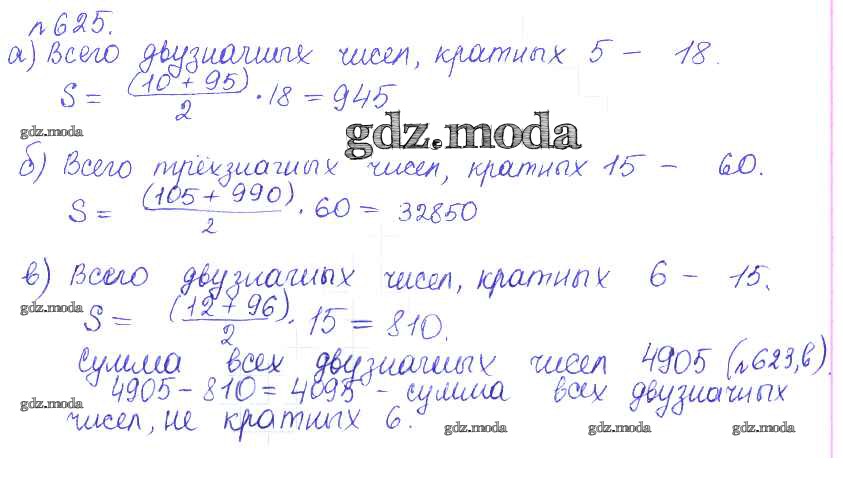 №625.
а) Всего двузначных чисел, кратных 5 - 18.
S = (10 + 95)/2 · 18 = 945
gdz.moda
gdz.moda
б) Всего трёхзначных чисел, кратных 15 - 60.
S = (105 + 990)/2 · 60 = 32850
в) Всего двузначных чисел, кратных 6 - 15.
gdz.moda
S = (12 + 96)/2 · 15 = 810.
Сумма всех двузначных чисел 4905 (№623,в).
4905 - 810 = 4095 - сумма всех двузначных
gdz.moda
чисел, не кратных 6.
gdz.moda gdz.moda gdz.moda